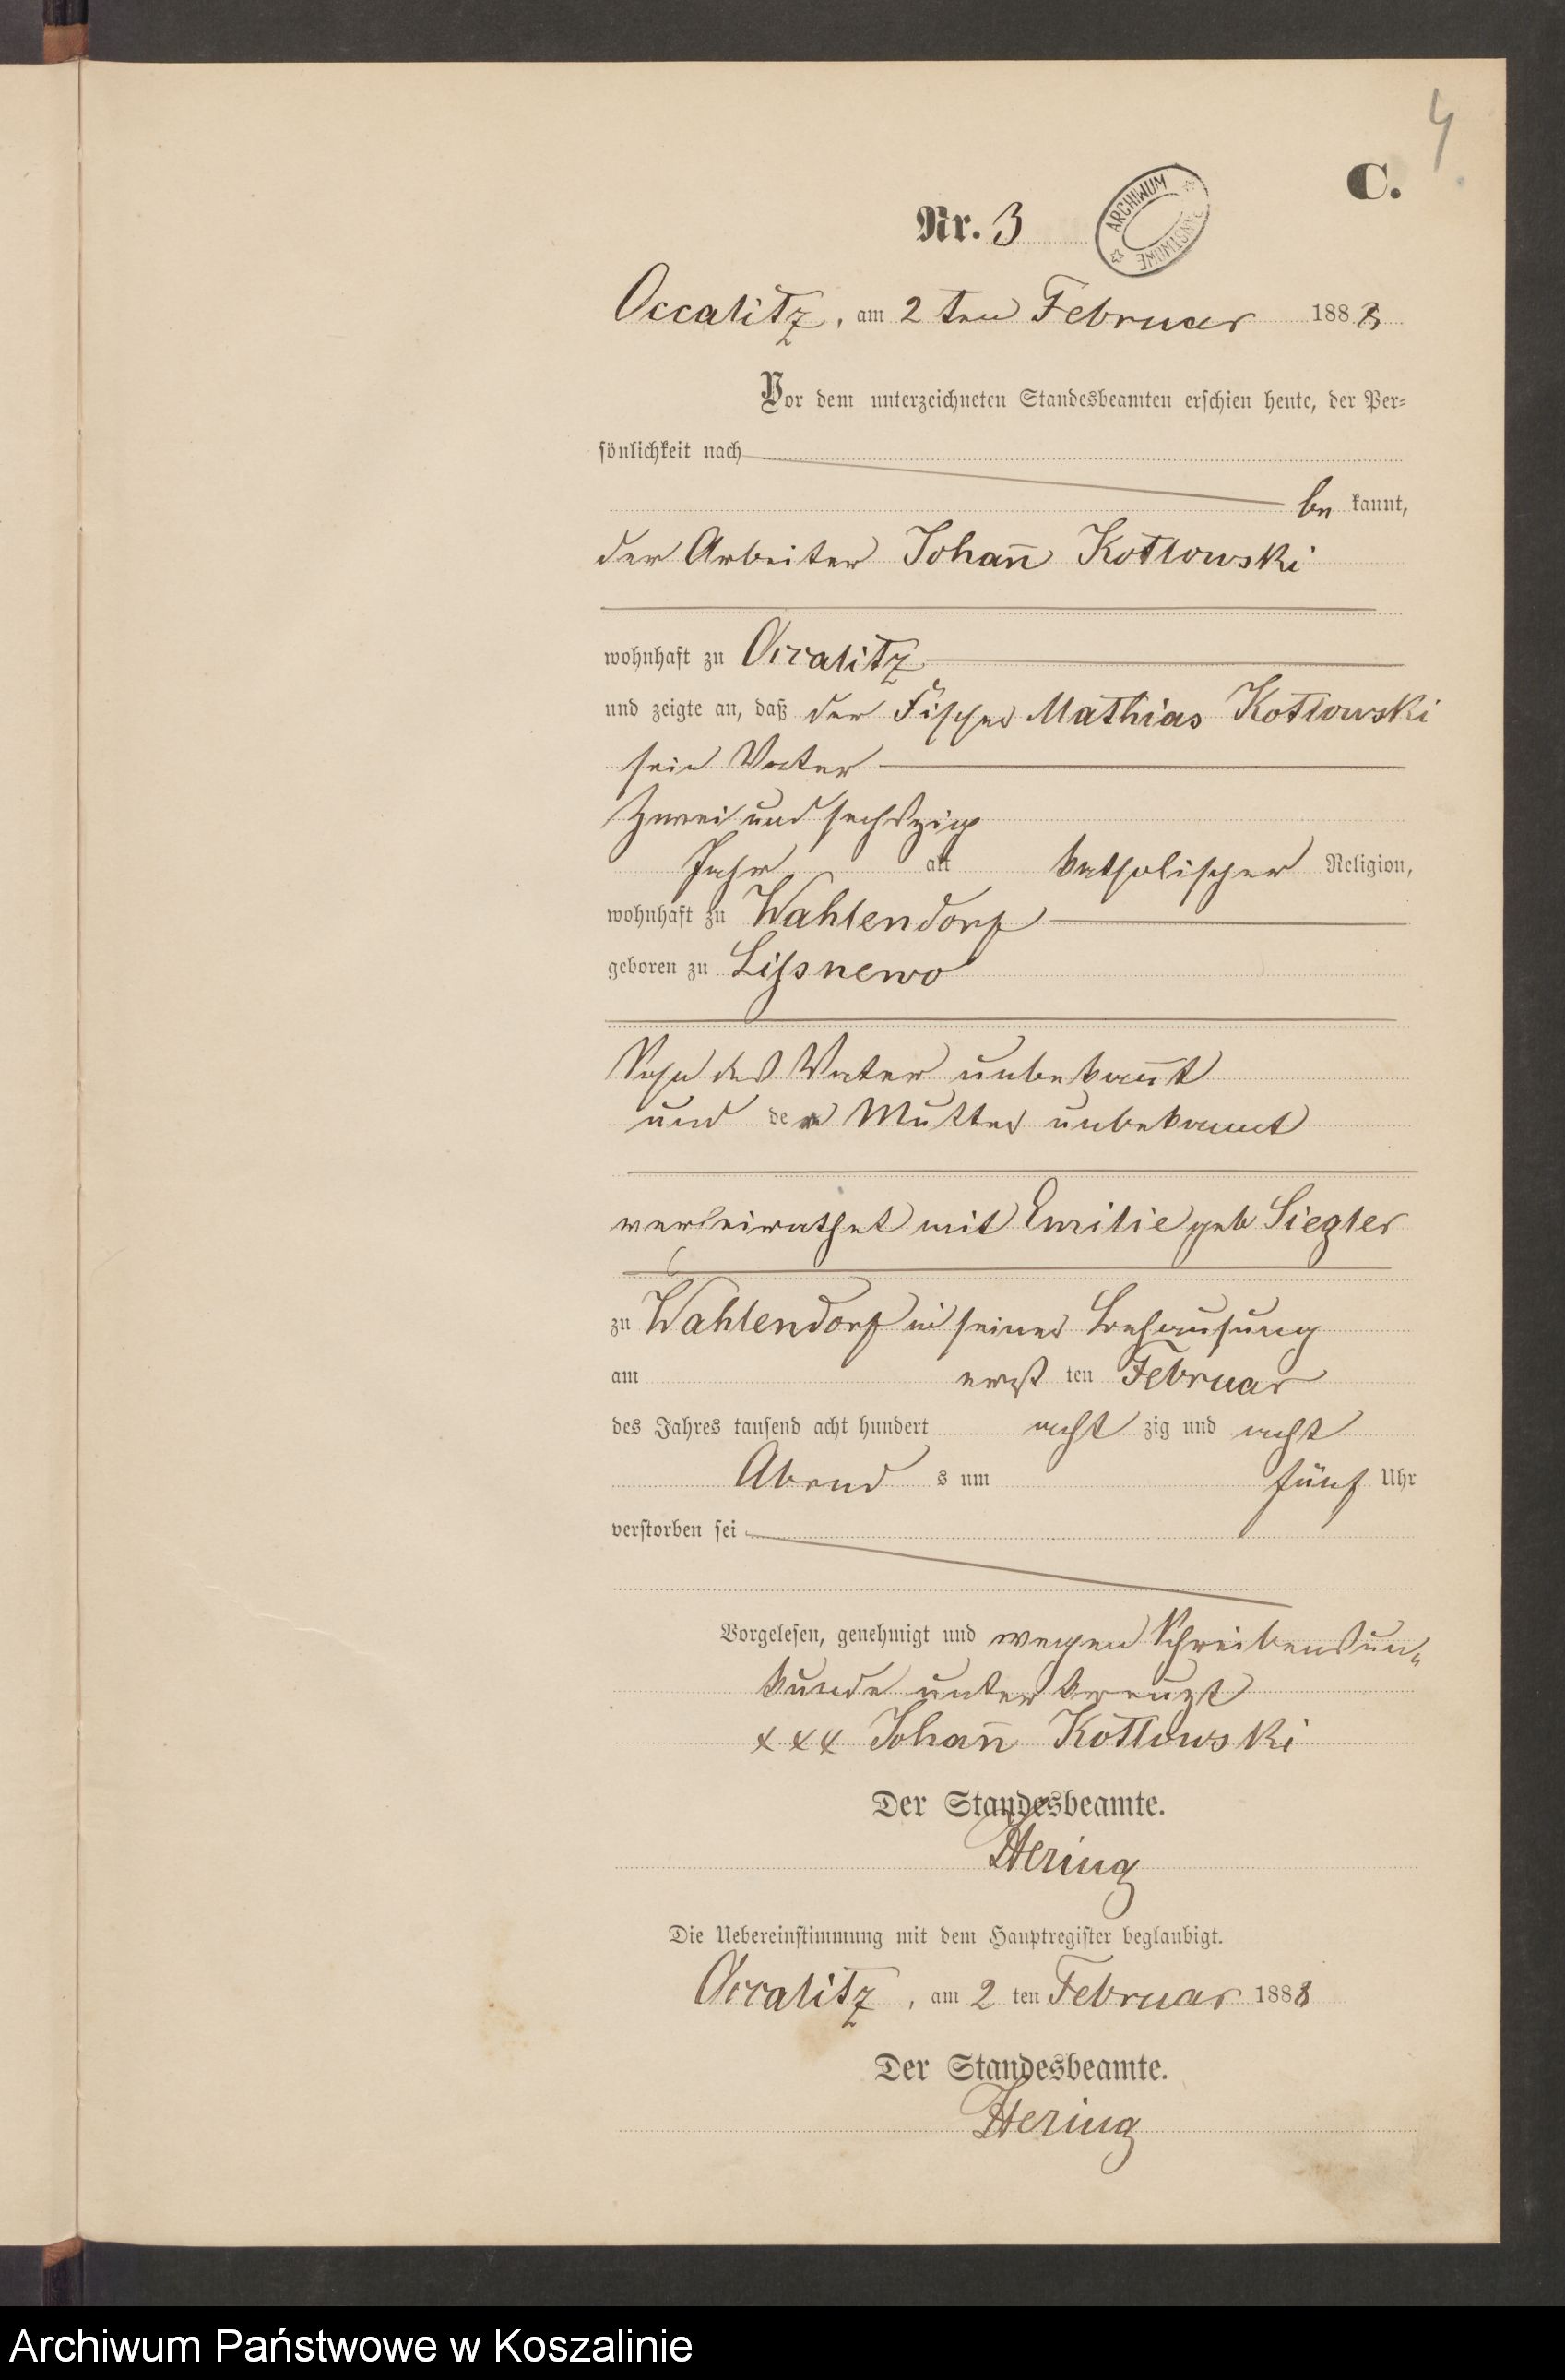 4
C.
Nr. 3
ARCHIWUM PAŃSTWOWE
Occalitz, am 2 ten Februar 1888
Vor dem unterzeichneten Standesbeamten erschien heute, der Per=
sönlichkeit nach
be kannt,
der Arbeiter Johan̄ Kotlowski
wohnhaft zu Occalitz
und zeigte an, daß der Fischer Mathias Kotlowski
sein Vater
Zwei und sechszig
Jahr alt katholischer Religion,
wohnhaft zu Wahlendorf
geboren zu Lissnewo
Sohn des Vater unbekan̄t
und der Mutter unbekannt
verheirathet mit Emilie geb Siegler
zu Wahlendorf in seiner Behausung
am erst ten Februar
des Jahres tausend acht hundert acht zig und acht
Abend s um fünf Uhr
verstorben sei
Vorgelesen, genehmigt und wegen Schreibensun„
kunde unterkreuzt
xxx Johan̄ Kotlowski
Der Standesbeamte.
Hering
Die Uebereinstimmung mit dem Hauptregister beglaubigt.
Occalitz, am 2 ten Februar 1888
Der Standesbeamte.
Hering
Archiwum Państwowe w Koszalinie